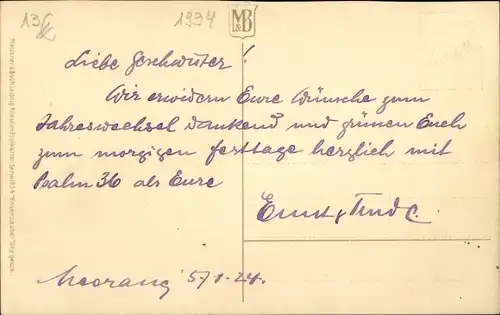 13
1934
M&B
Liebe Geschwister!
Wir erwidern Eure Wünsche zum
Jahreswechsel dankend und grünen Euch
zum morgigen Festtage herzlich mit
Psalm 36 als Eure
Ernst &
5/1.24.